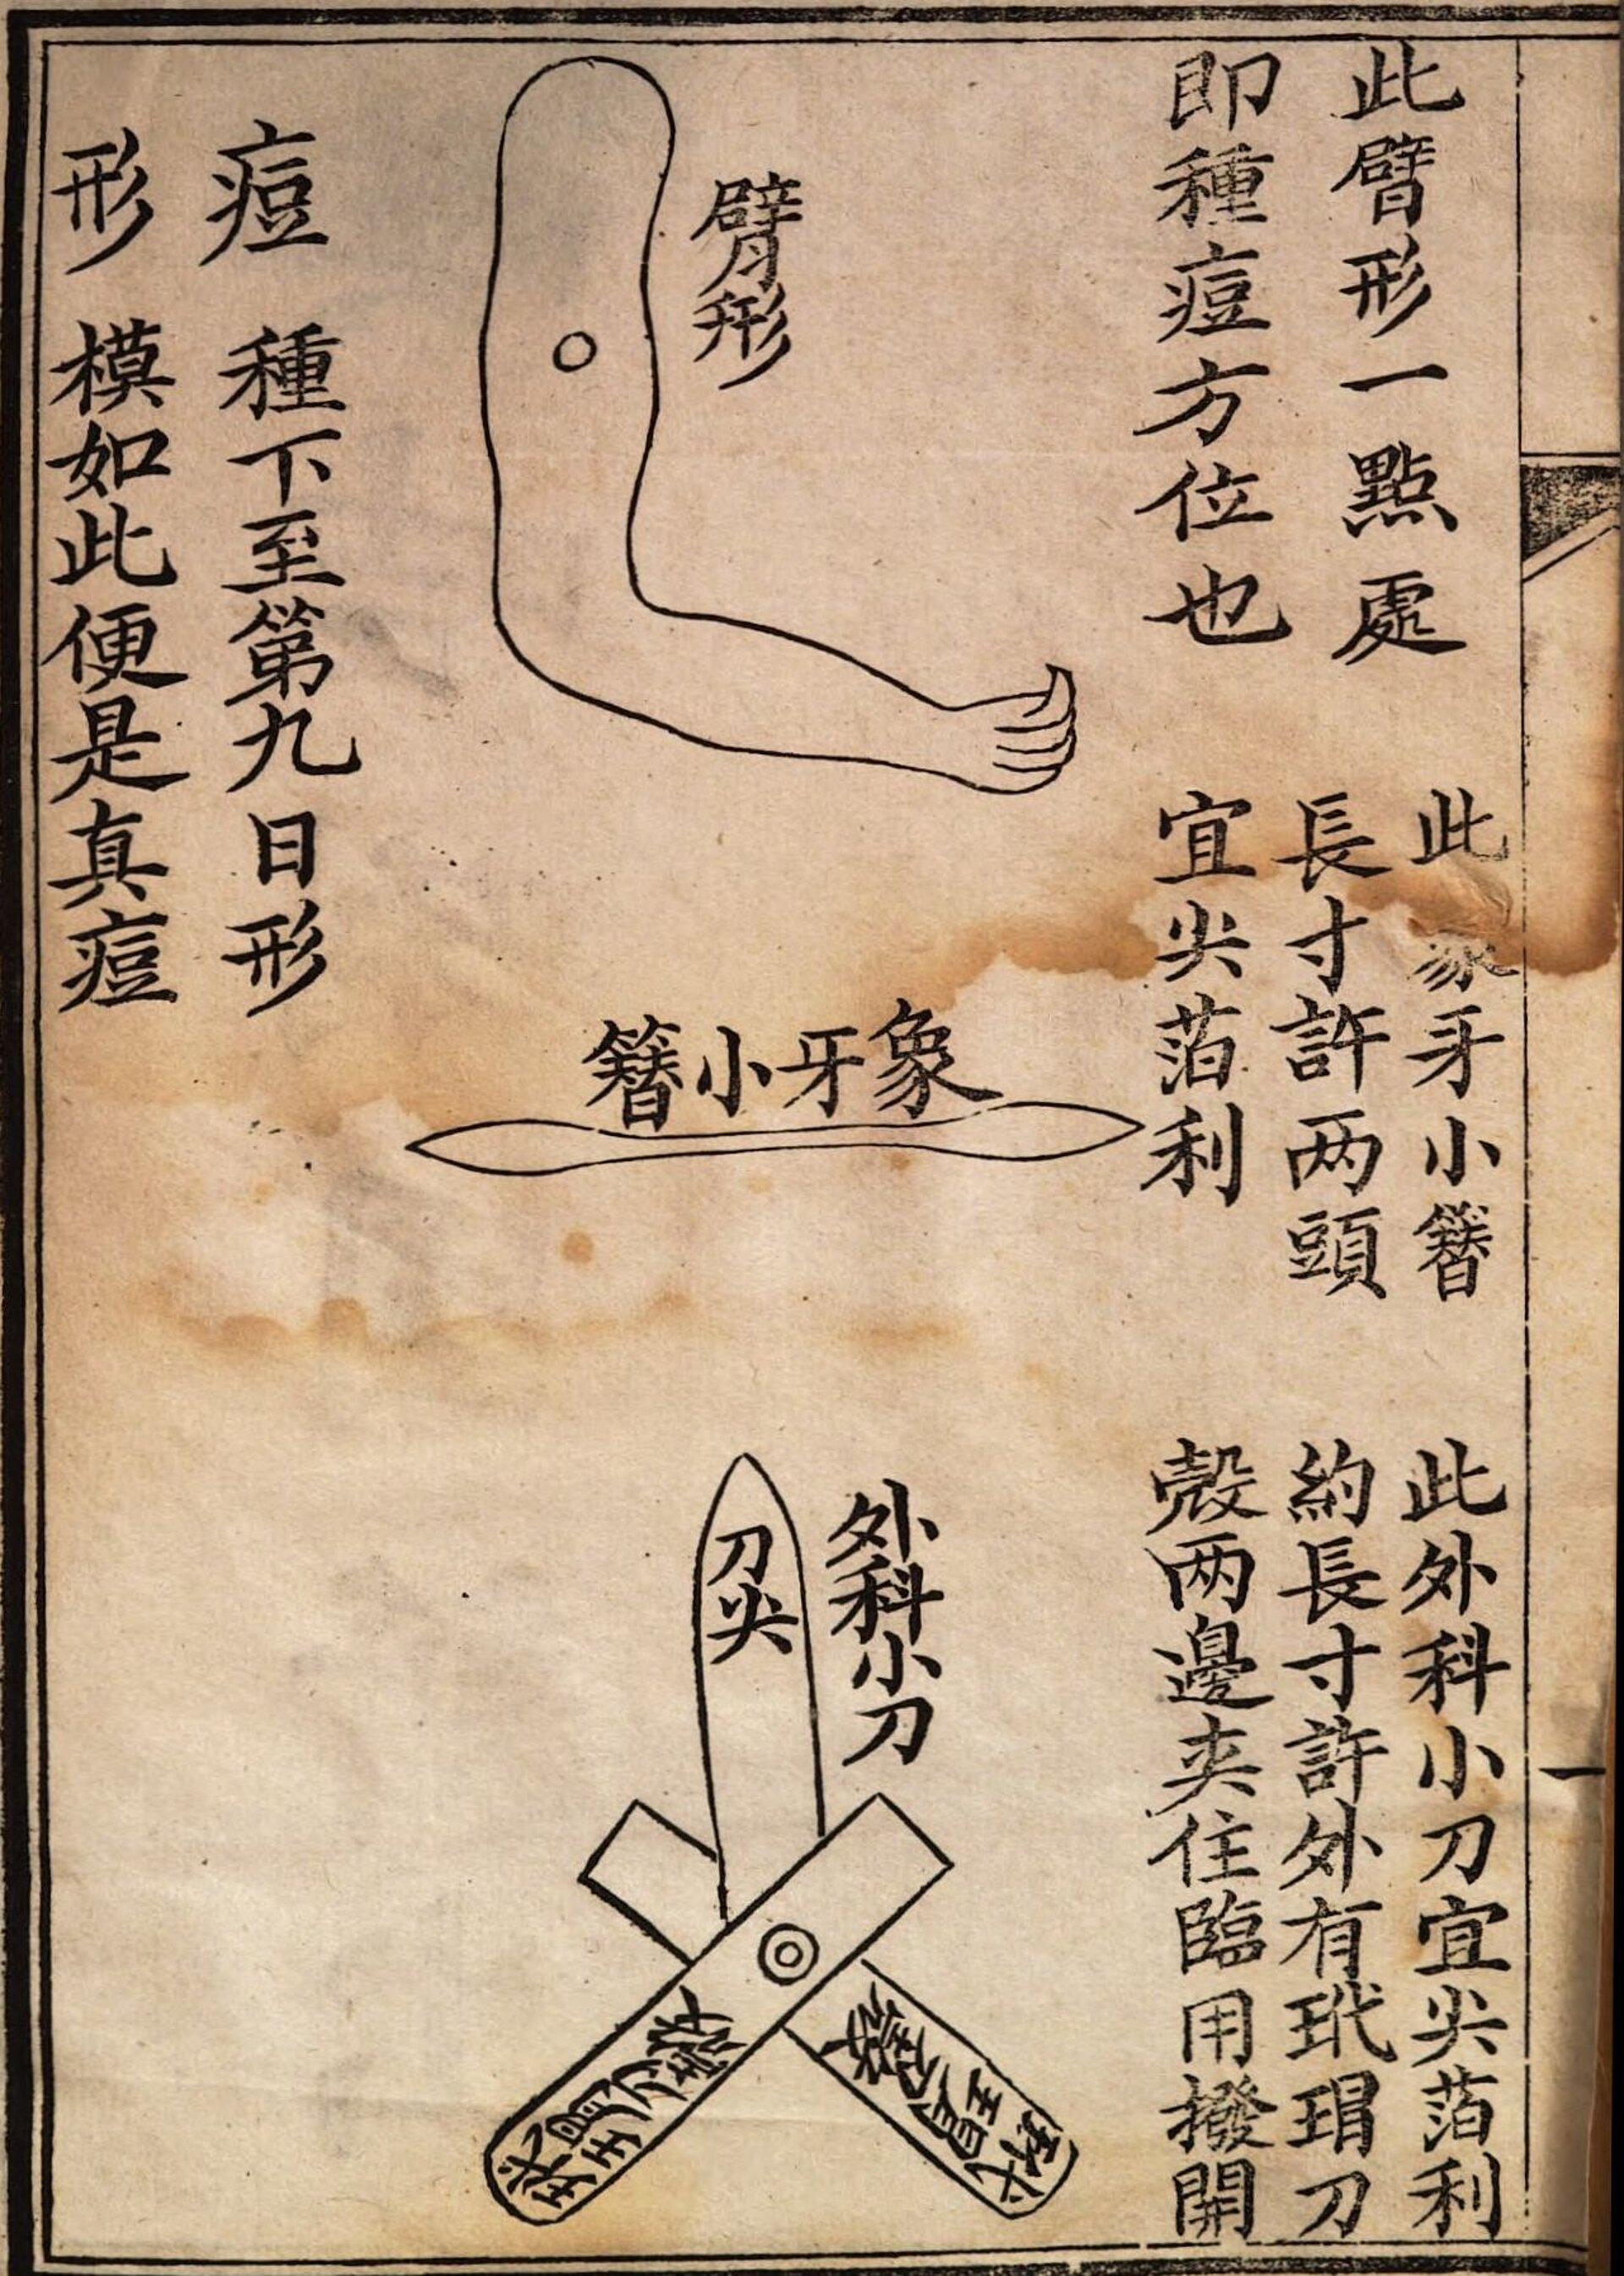 此臂形一點處
即種痘方位也
臂形
此象牙小簪
長寸許两頭
宜尖萡利
象牙小簪
此外科小刀宜尖萡利
約長寸許外有玳瑁刀
殼两邊夾住臨用撥開
外科小刀
刀尖
玳瑁刀殼
玳瑁刀殼
痘形
種下至第九日形
模如此便是真痘
一